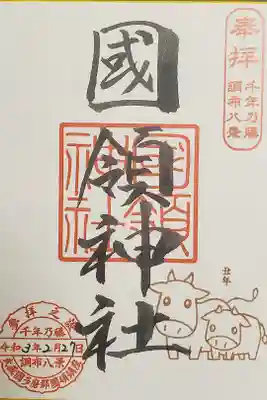 奉拝
千年乃藤
調布八景
國領神社
國領
神社
丑年
参拝之証
千年乃藤
令和3年2月27日
調布八景